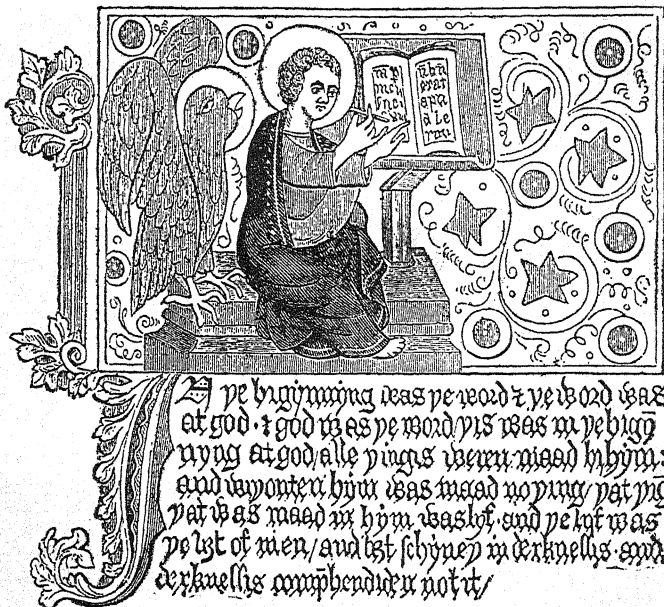 IN þe bigynnyng was þe word & þe word was
at god · & god was þe word/ þis was in þe bigyn̄
nyng at god/ alle þingis weren maad bi hym:
and wiþouten hym was maad no þing/ þat þīg
þat was maad in hym was lyf · and þe lyf was
þe lyȝt of men/ and lyȝt schyneþ in derknessis · and
derknessis comp̄hendiden not it/